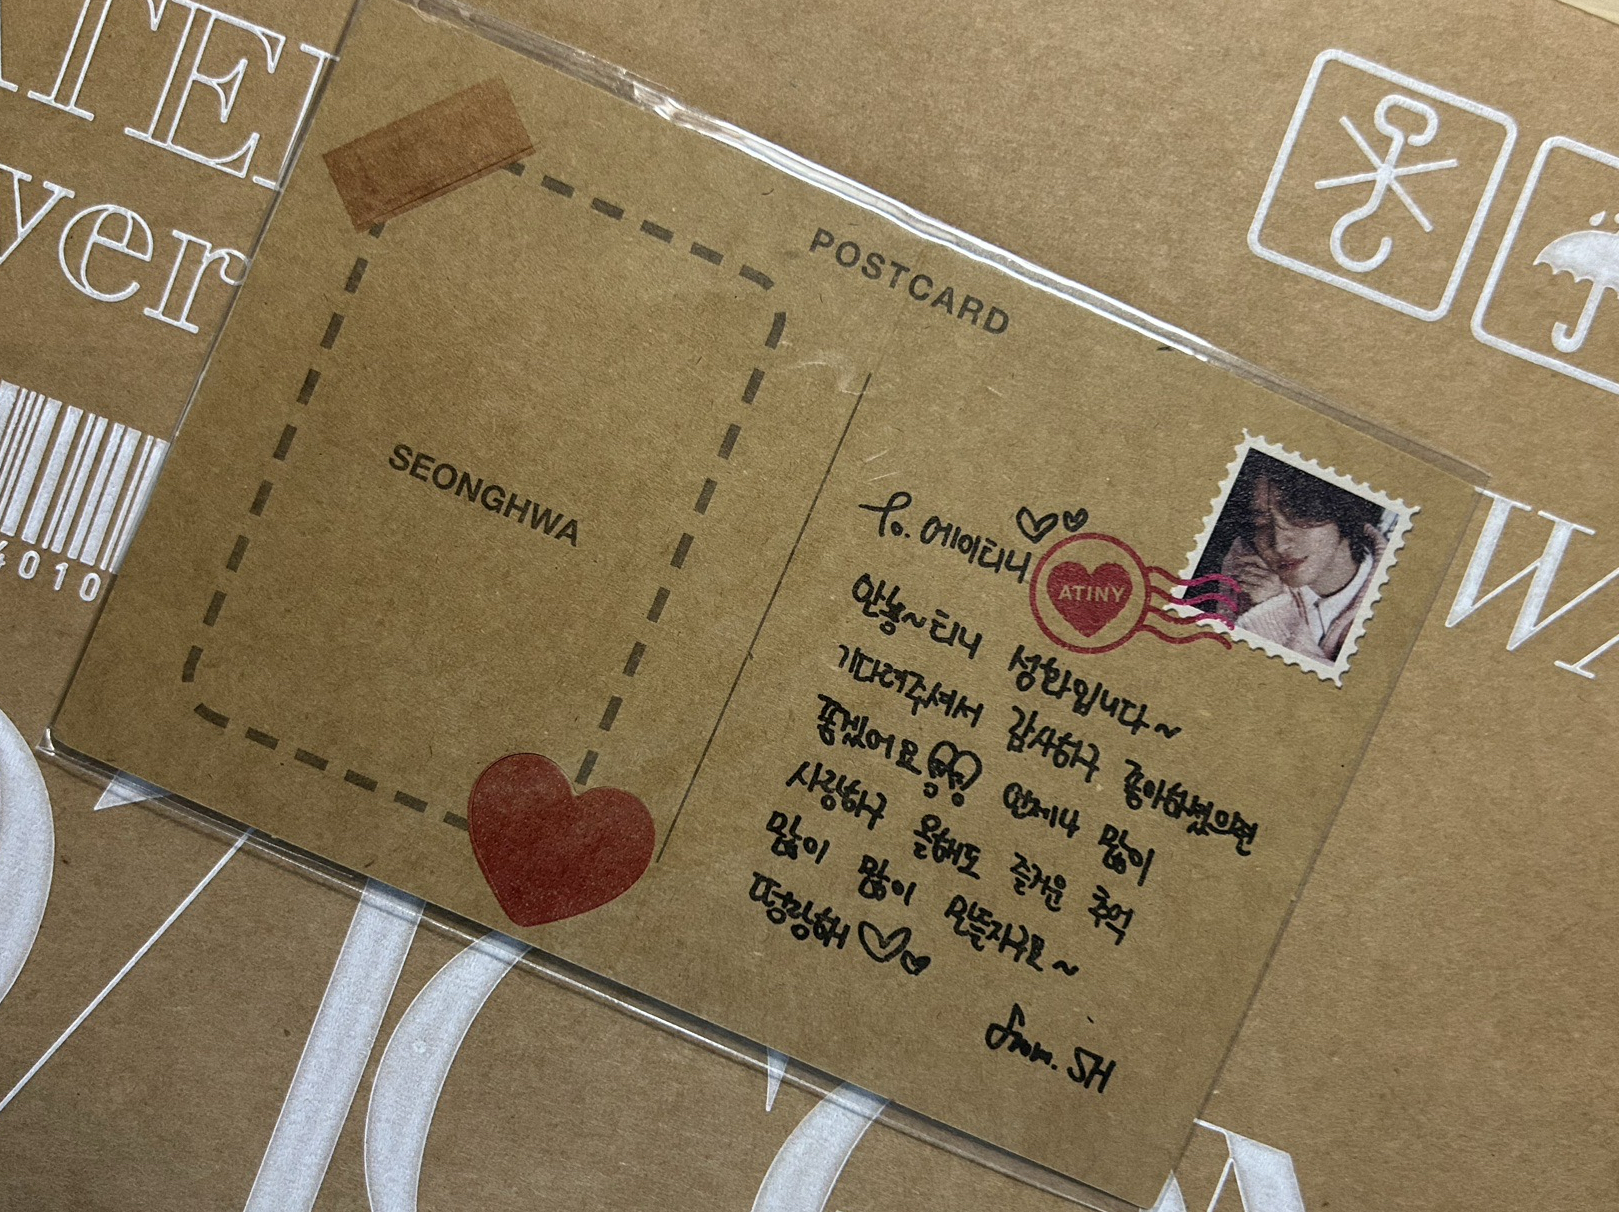 POSTCARD
SEONGHWA
To. 에이티니
ATINY
안농~티니 성화입니다~
기다려주셔서 감사하구 좋아하셨으면
좋겠어요 언제나 많이
사랑하구 올해도 즐거운 추억
많이 많이 만들자구요~
떠랑해
from. SH
yer
4010
W